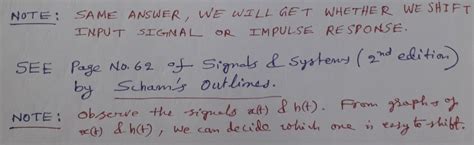 NOTE: SAME ANSWER, WE WILL GET WHETHER WE SHIFT
INPUT SIGNAL OR IMPULSE RESPONSE.
SEE Page No. 62 of Signals & Systems (2nd edition)
by Scham's Outlines.
NOTE: Observe the signals x(t) & h(t). From graphs of
x(t) & h(t), we can decide which one is easy to shift.